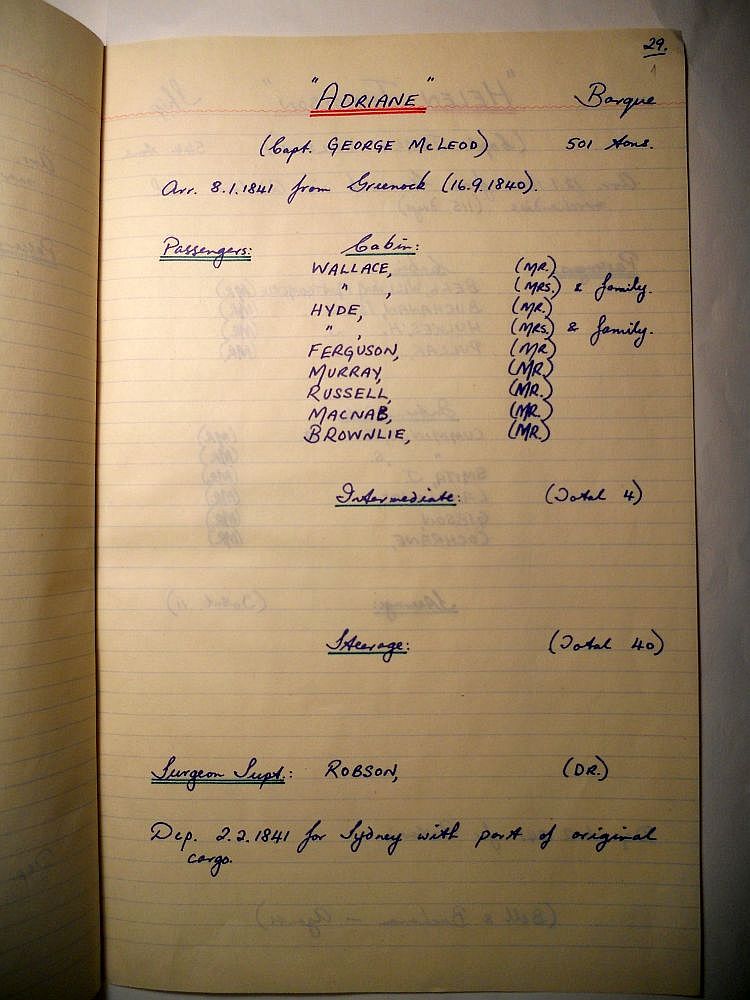 29.
"ADRIANE" Barque
(Capt. GEORGE McLEOD) 501 tons.
Arr. 8.1.1841 from Greenock (16.9.1840).
Passengers: Cabin:
WALLACE, (MR.)
" , (MRS.) & family.
HYDE, (MR.)
" , (MRS.) & family.
FERGUSON, (MR)
MURRAY, (MR.)
RUSSELL, (MR.)
MACNAB, (MR.)
BROWNLIE, (MR.)
Intermediate: (Total 4)
Steerage: (Total 40)
Surgeon Supt.: ROBSON, (DR.)
Dep. 2.2.1841 for Sydney with part of original
cargo.